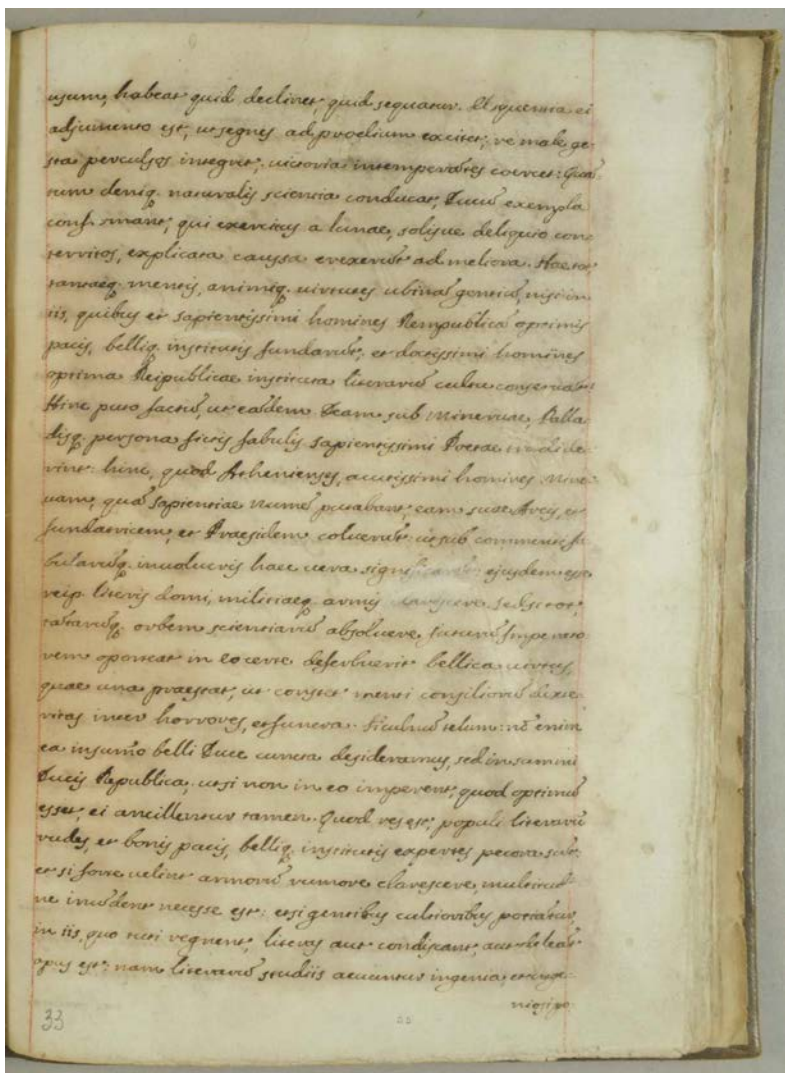 usum, habeat quid declinet, quid sequatur. Eloquentia ei
adjumento est, ut segnes ad proelium excitet, re male ge-
sta perculsos integret, victoria intemperãtes coercet: Quã-
tum deniq. naturalis scientia conducat, Ducũ exempla
confirmant, qui exercitus a lunae, solisve deliquio con-
territos, explicata caussa erexerũt ad meliora. Hae tot,
tantaeq. mentis, animiq. virtutes ubinã gentiũ, nisi in
iis, quibus et sapientissimi homines Rempublicã optimis
pacis, belliq. institutis fundarũt, et doctissimi homines
optima Reipublicae instituta literariũ cultu conservãt?
Hinc puto factũ, ut eãdem Deam sub Minervae, Palla
disq. persona fictis fabulis sapientissimi Poetae
rint: hinc, quod Athenienses, acutissimi homines Miner-
vam, quã sapientiae numẽ putabant, eam suae Arcis, et
fundatricem, et Praesidem coluerũt: ut sub commentis fa-
bularũq. involucris haec vera significarẽt: ejusdem esse
reip. literis domi, militiaeq. armis clarescere. Sed si tot,
tãtarũq. orbem scientiarũ absolvere futurũ Imperato-
rem oporteat in eo certe deferbuerit bellica virtus,
quae una praestat, ut constet menti consiliorũ dexte-
ritas inter horrores, et funera. Ficulnũ telum: nõ enim
ea in sum̃o belli Duce cuncta desideramus, sed in summi
Ducis Republica, ut si non in eo imperent, quod optimũ
esset, ei ancillentur tamen. Quod res est, populi literarũ
rudes, et bonis pacis, belliq. institutis expertes pecora sũt:
et si forte velint armorũ rumore clarescere, multitudi-
ne inũdent necesse est: et si gentibus cultioribus potiãtur,
in iis, quo tuti regnent, literas aut condiscant, aut deleãt
opus est: nam literarũ studiis acuuntur ingenia, et inge-
niosi po
33